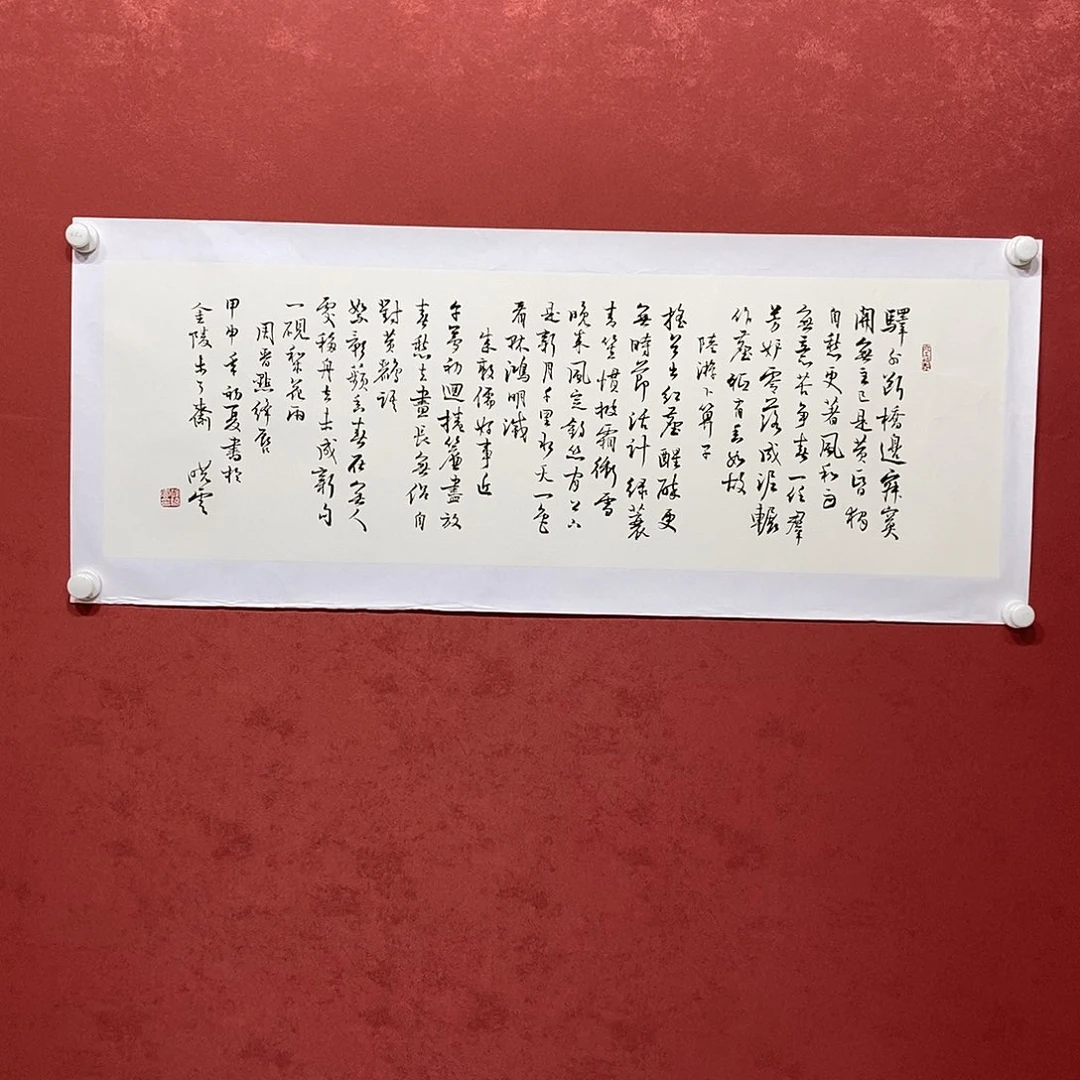 驛外斷橋邊寂寞
開無主已是黃昏獨
自愁更著風和雨
無意苦爭春一任羣
芳妒零落成泥輾
作塵秖有香如故
陸游卜算子
搖首出紅塵醒醉更
無時節活計綠蓑
青笠慣披霜衝雪
晚來風定釣絲有上下
是新月千里水天一色
看孤鴻明滅
朱敦儒好事近
午夢初迴捲簾盡放
春愁去晝長無侶自
對黃鸝語
絮影蘋香春在無人
處移舟去未成新句
一硯梨花雨
周晉點絳脣
甲申年初夏書於
金陵 齋 曉雲